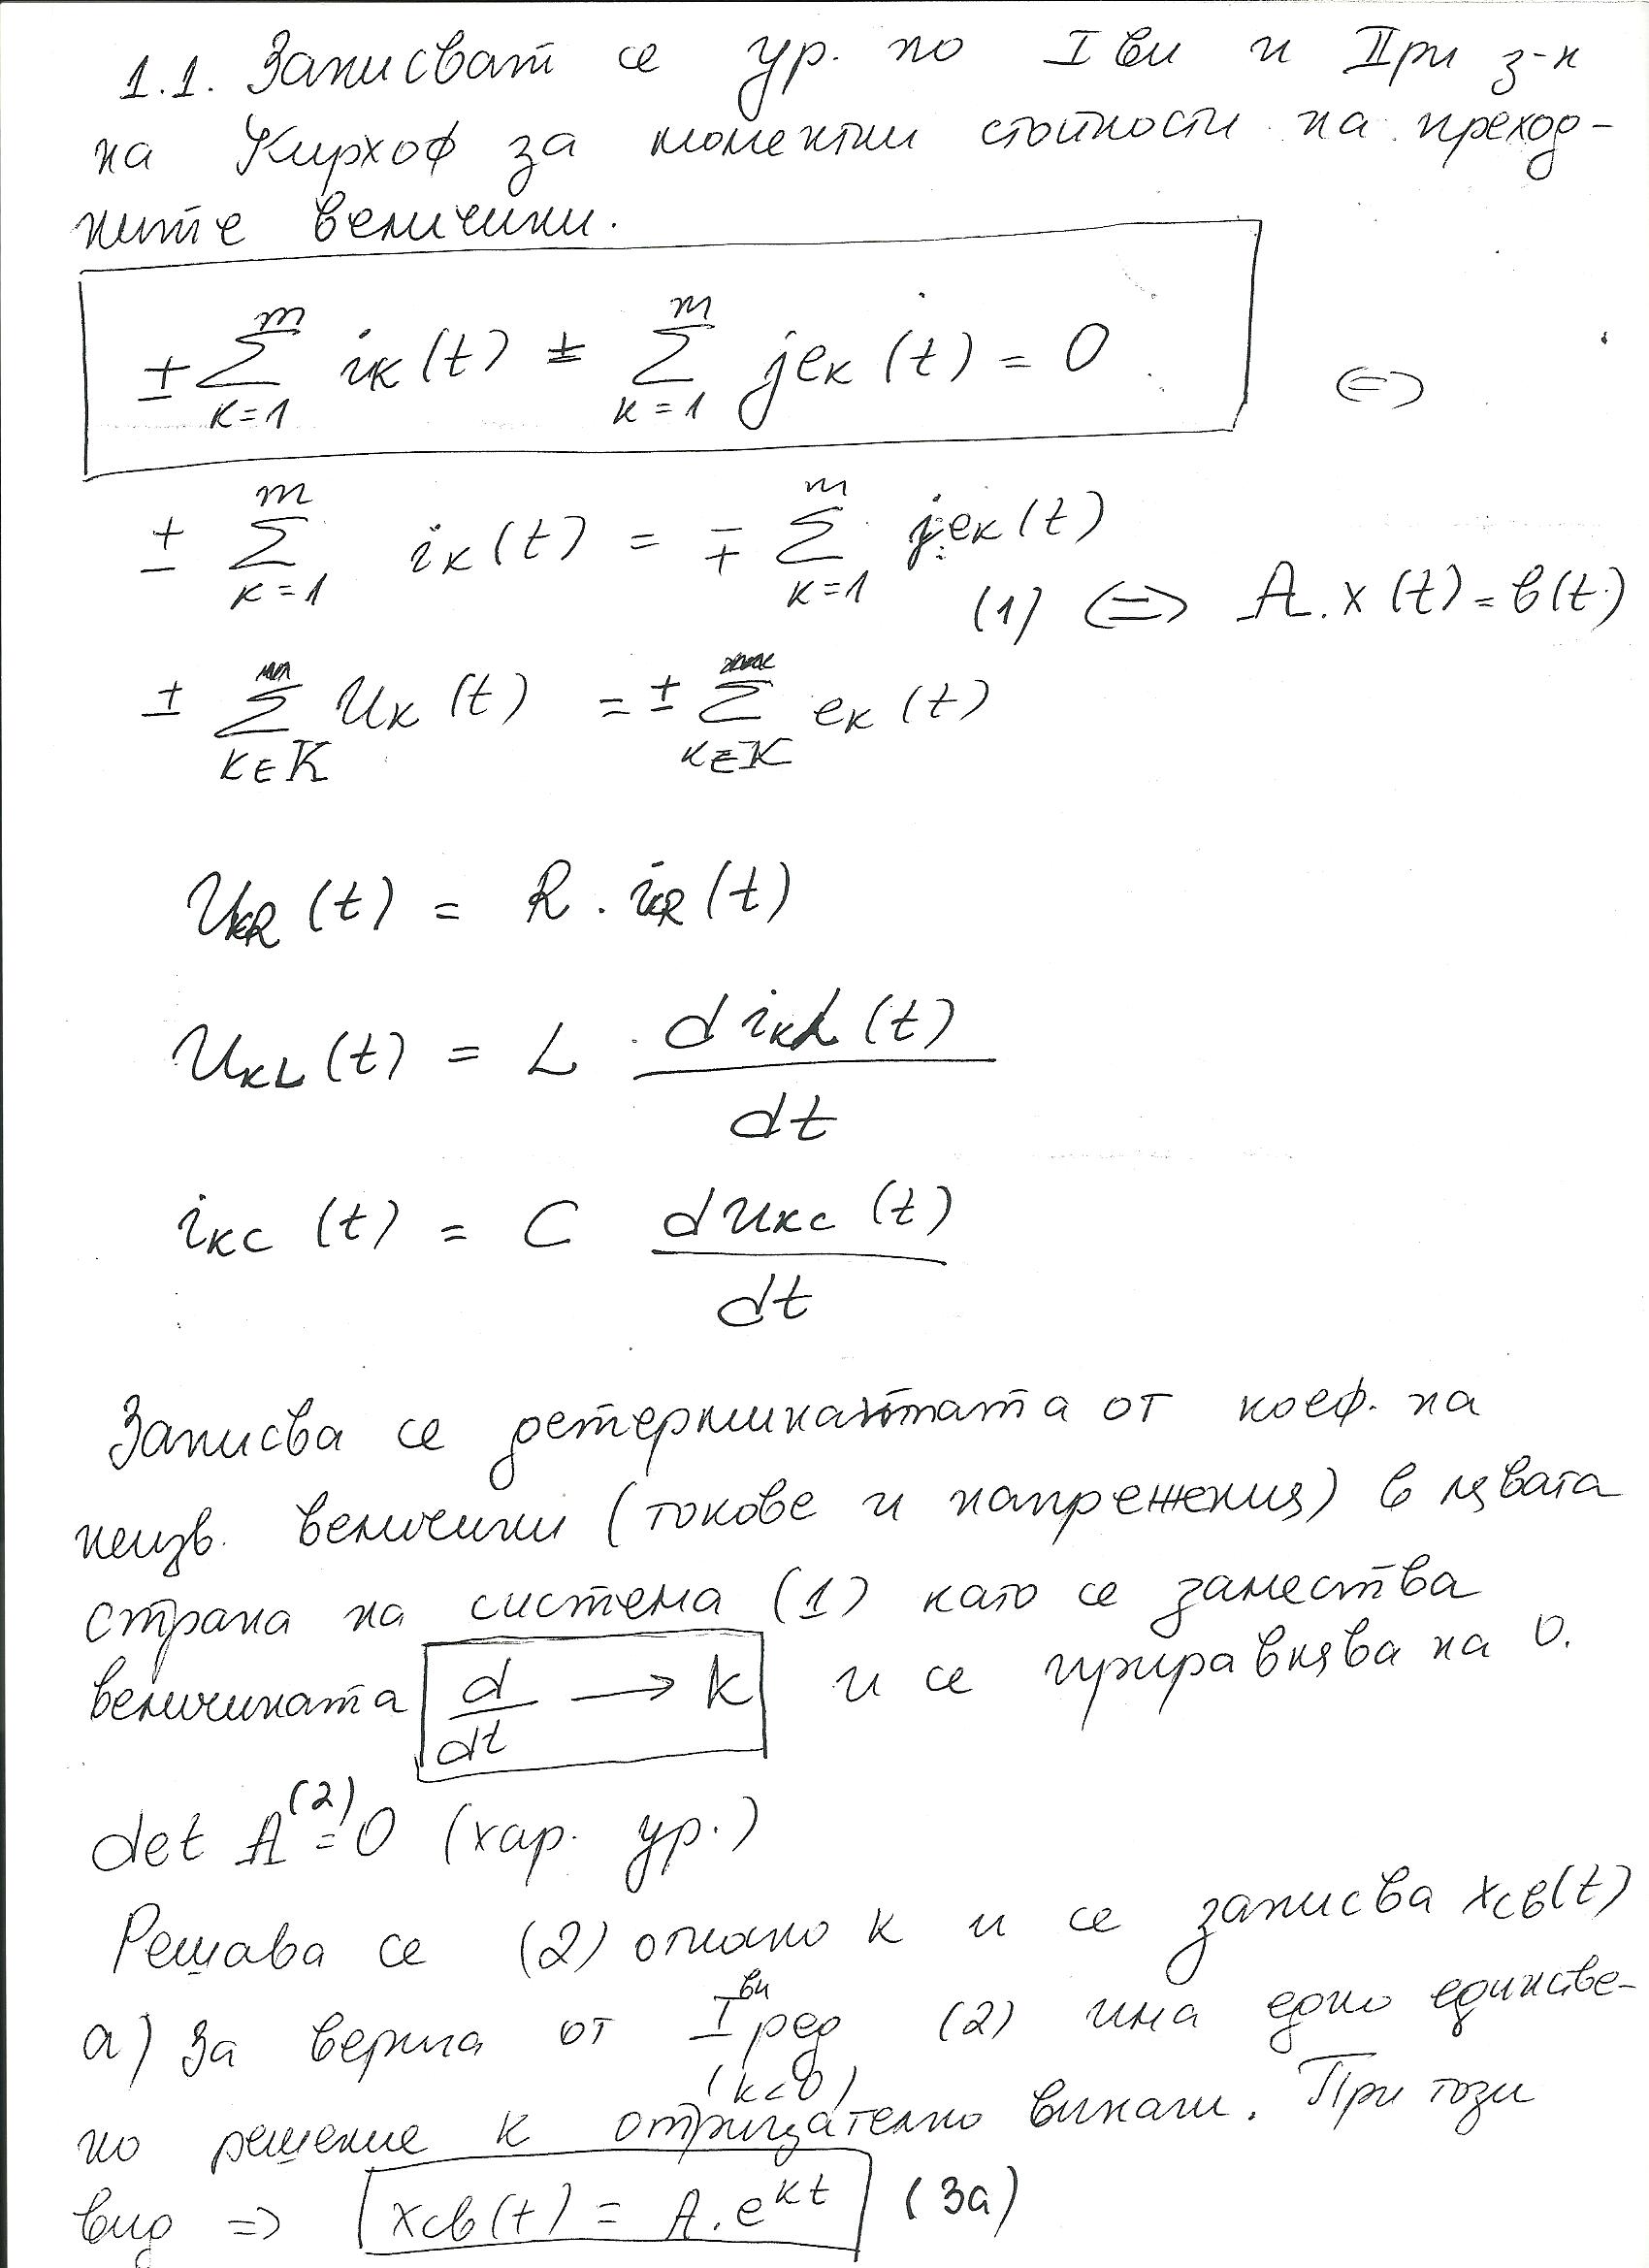 1.1. Записват се ур. по Iви и IIри з-н
на Кирхоф за моментни стойности на преход-
ните величини.
± ∑_{k=1}^{m} i_k(t) ± ∑_{k=1}^{m} j_{ek}(t) = 0 <=>
± ∑_{k=1}^{m} i_k(t) = ∓ ∑_{k=1}^{m} j_{ek}(t)
(1) <=> A.x(t)=b(t)
± ∑_{k∈K} U_k(t) = ± ∑_{k∈K} e_k(t)
U_{kR}(t) = R . i_{kR}(t)
U_{kL}(t) = L . d i_{kL}(t) / dt
i_{kC}(t) = C d U_{kC}(t) / dt
Записва се детерминантата от коеф. на
неизв. величини (токове и напрежения) в лявата
страна на система (1) като се замества
величината d/dt → k и се приравнява на 0.
det A (2) = 0 (хар. ур.)
Решава се (2) относно k и се записва x_{св}(t)
а) За верига от Iви ред (2) има едно единстве-
(k<0)
но решение k отрицателно винаги. При този
вид => x_{св}(t) = A.e^{kt} (3а)